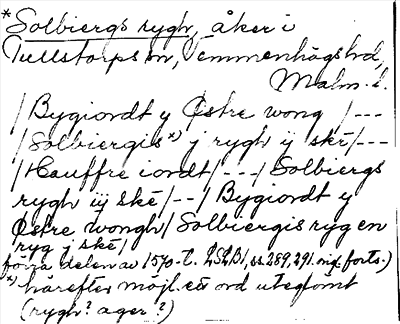 *Solbiergs rygh, åker i
Tullstorps sn, Vemmenhögs hd,
Malm. l.
/Bygiordt y Østre wong /---
/Solbiergis *) j rygh ij skē/---
/Hauffre iordt/---/Solbiergs
rygh iij skē/--/Bygiordt y
Østre wongh/Solbiergis ryg en
ryg j skē/
förra delen av 1570-t. LSLB1, ss. 289, 291. orig. forts.)
*) härefter möjl. ett ord uteglömt
(rygh? ager?)